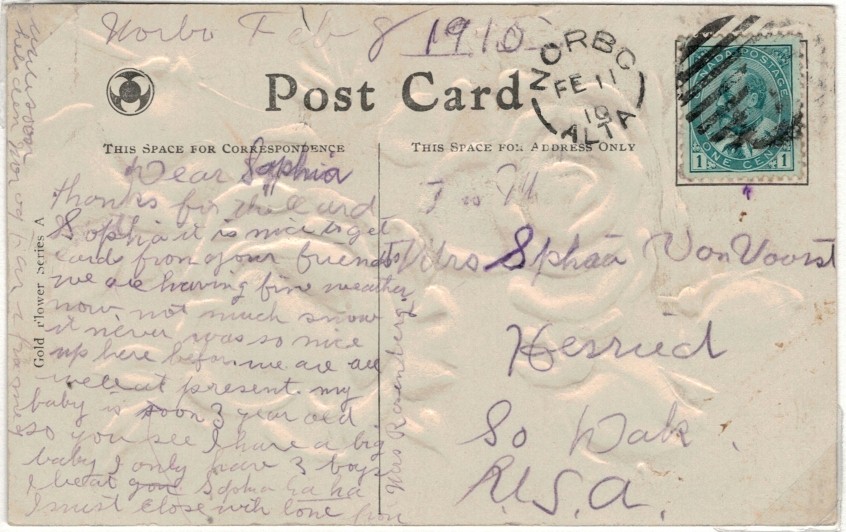 Norbo Feb 8 1910
Post Card
THIS SPACE FOR CORRESPONDENCE
THIS SPACE FOR ADDRESS ONLY
NORBO
FE 11
10
ALTA
CANADA POSTAGE
1 ONE CENT 1
Dear Sophia
Thanks for the Card
Sophia it is nice to get
cards from your friends
we are having fine weather
now not much snow
it never was so nice
up here before we are all
well at present. my
baby is soon 3 year old
so you see I have a big
baby I only have 3 boys
I beat you Sophia ha ha
I must close with love from
Mrs Rosenberg
Gold Flower Series A
To
Mrs Sphia VonVoorst
Herried
So Dak.
U.S.A.